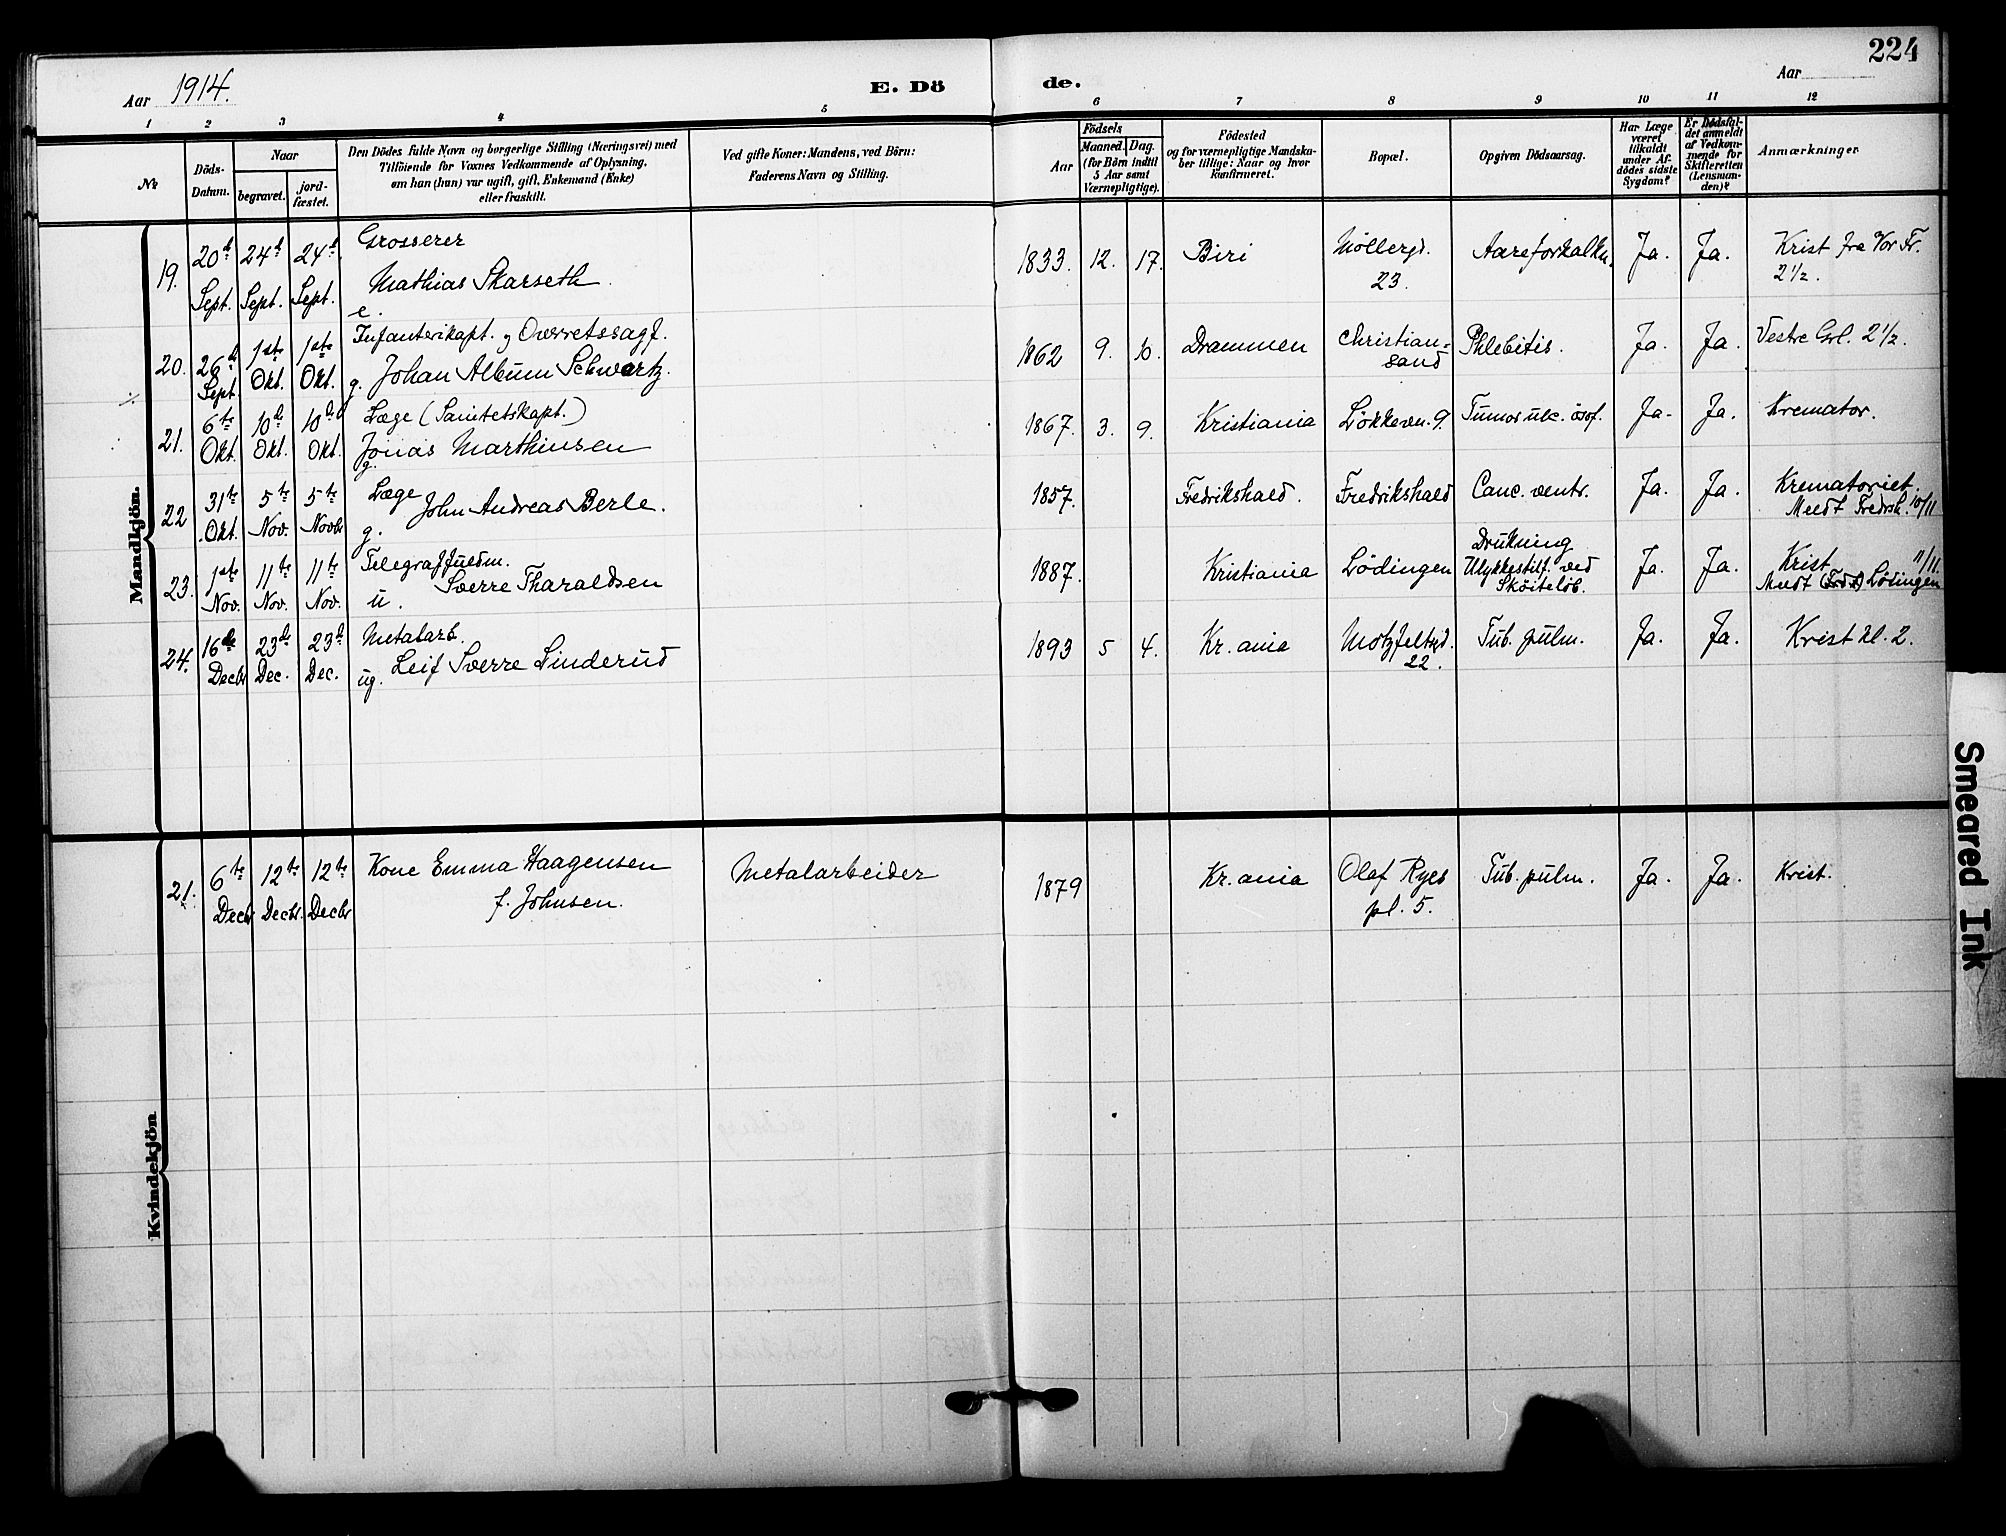 224
Aar 1914.
E. Dö
de.
Aar
1 2 3 4 5 6 7 8 9 10 11 12
No
Döds-
Datum.
Naar
begravet.
jord-
fæstet.
Den Dödes fulde Navn og borgerlige Stilling (Næringsvei) med
Tilföiende for Voxnes Vedkommende af Oplysning,
om han (hun) var ugift, gift, Enkemand (Enke)
eller fraskilt.
Ved gifte Koner: Mandens, ved Börn:
Faderens Navn og Stilling.
Födsels
Aar
Maaned.
Dag.
(for Börn indtil
5 Aar samt
Værnepligtige).
Födested
og for værnepligtige Mandska-
ber tillige: Naar og hvor
konfirmeret.
Bopæl.
Opgiven Dödsaarsag.
Har Læge
været
tilkaldt
under Af-
dödes sidste
Sygdom?
Er Dödsfal-
det anmeldt
af Vedkom-
mende for
Skifteretten
(Lensman-
den)?
Anmærkninger
Mandkjön.
19. 20de Sept. 24de Sept. 24de Sept.
Grosserer
Mathias Skarseth.
e.
1833. 12. 17. Biri
Möllergd.
23.
Aareforkalkn. Ja. Ja.
Krist fra Vor Fr.
2 1/2.
20. 26de Sept. 1ste Okt. 1ste Okt.
Infanterikapt. og Overretssagf.
g. Johan Album Schwartz.
1862 9. 10. Drammen
Christian-
sand
Phlebitis. Ja. Ja. Vestre Grl. 2 1/2.
21. 6te Okt. 10de Okt. 10de Okt.
Læge (Sanitetskapt.)
Jonas Marthinsen
g.
1867. 3. 9. Kristiania Lökkevn. 9. Tumor ulc. ösof. Ja. Ja. Kremator.
22 31te Okt. 5te Nov. 5te Novb
Læge
John Andreas Berle.
g.
1857. Fredrikshald. Fredrikshald Canc. ventr. Ja. Ja.
Krematoriet.
Meedt Fredrsh. 10/11
23. 1ste Nov. 11te Nov. 11te Nov.
Telegraffuldm.
Sverre Tharaldsen
u.
1887. Kristiania Lödingen
Drukning
Ulykkestilf. ved
Sköiteløb.
Ja. Ja.
Krist 11/11.
Meedt Lödingen
24. 16de Decbr 23de Dec. 23de Dec.
Metalarb.
ug. Leif Sverre Linderud
1893 5 4. Kr.ania
Motzfeltsgd.
22.
Tub. pulm. Ja. Ja. Krist kl. 2.
Kvindekjön
21. 6te Decbr 12te Decbr. 12te Decbr
Kone Emma Haagensen
f. Johnsen.
Metalarbeider
1879 Kr.ania
Olaf Ryes
pl. 5.
Tub. pulm. Ja. Ja. Krist.
Smeared Ink